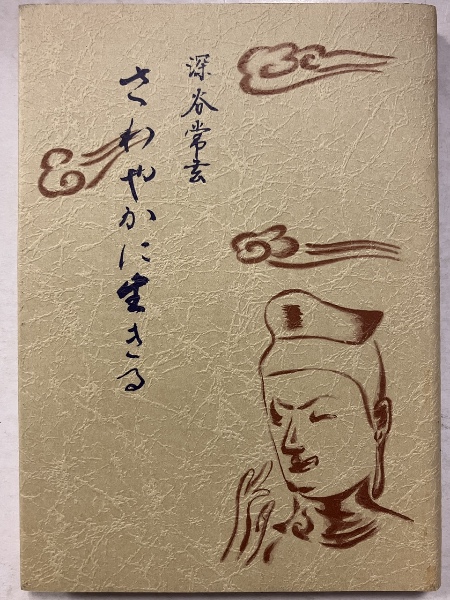 深谷常玄
さわやかに生きる